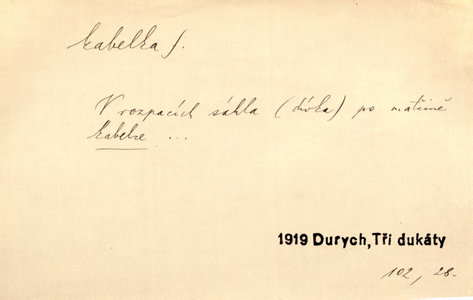 kabelka f.
V rozpacích sáhla (dívka) po matčině
kabelce ...
1919 Durych, Tři dukáty
102, 28.